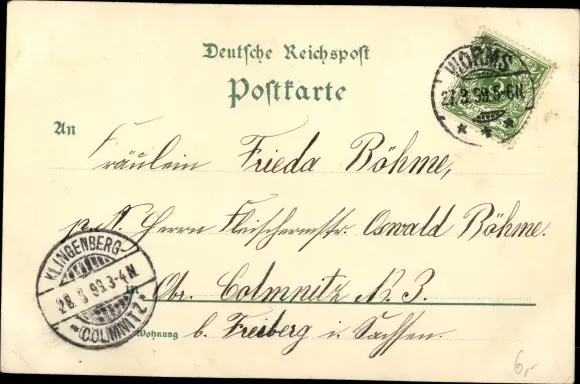 Deutsche Reichspost
Postkarte
WORMS
27.3.99.5-6N.
* * *
An
Fräulein Frieda Böhme,
p. A. Herrn Fleischermstr. Oswald Böhme.
in Obr. Colmnitz N. 3.
Wohnung b. Freiberg i. Sachsen.
KLINGENBERG-
28.3.99.3-4N.
*(COLMNITZ)*
6,-